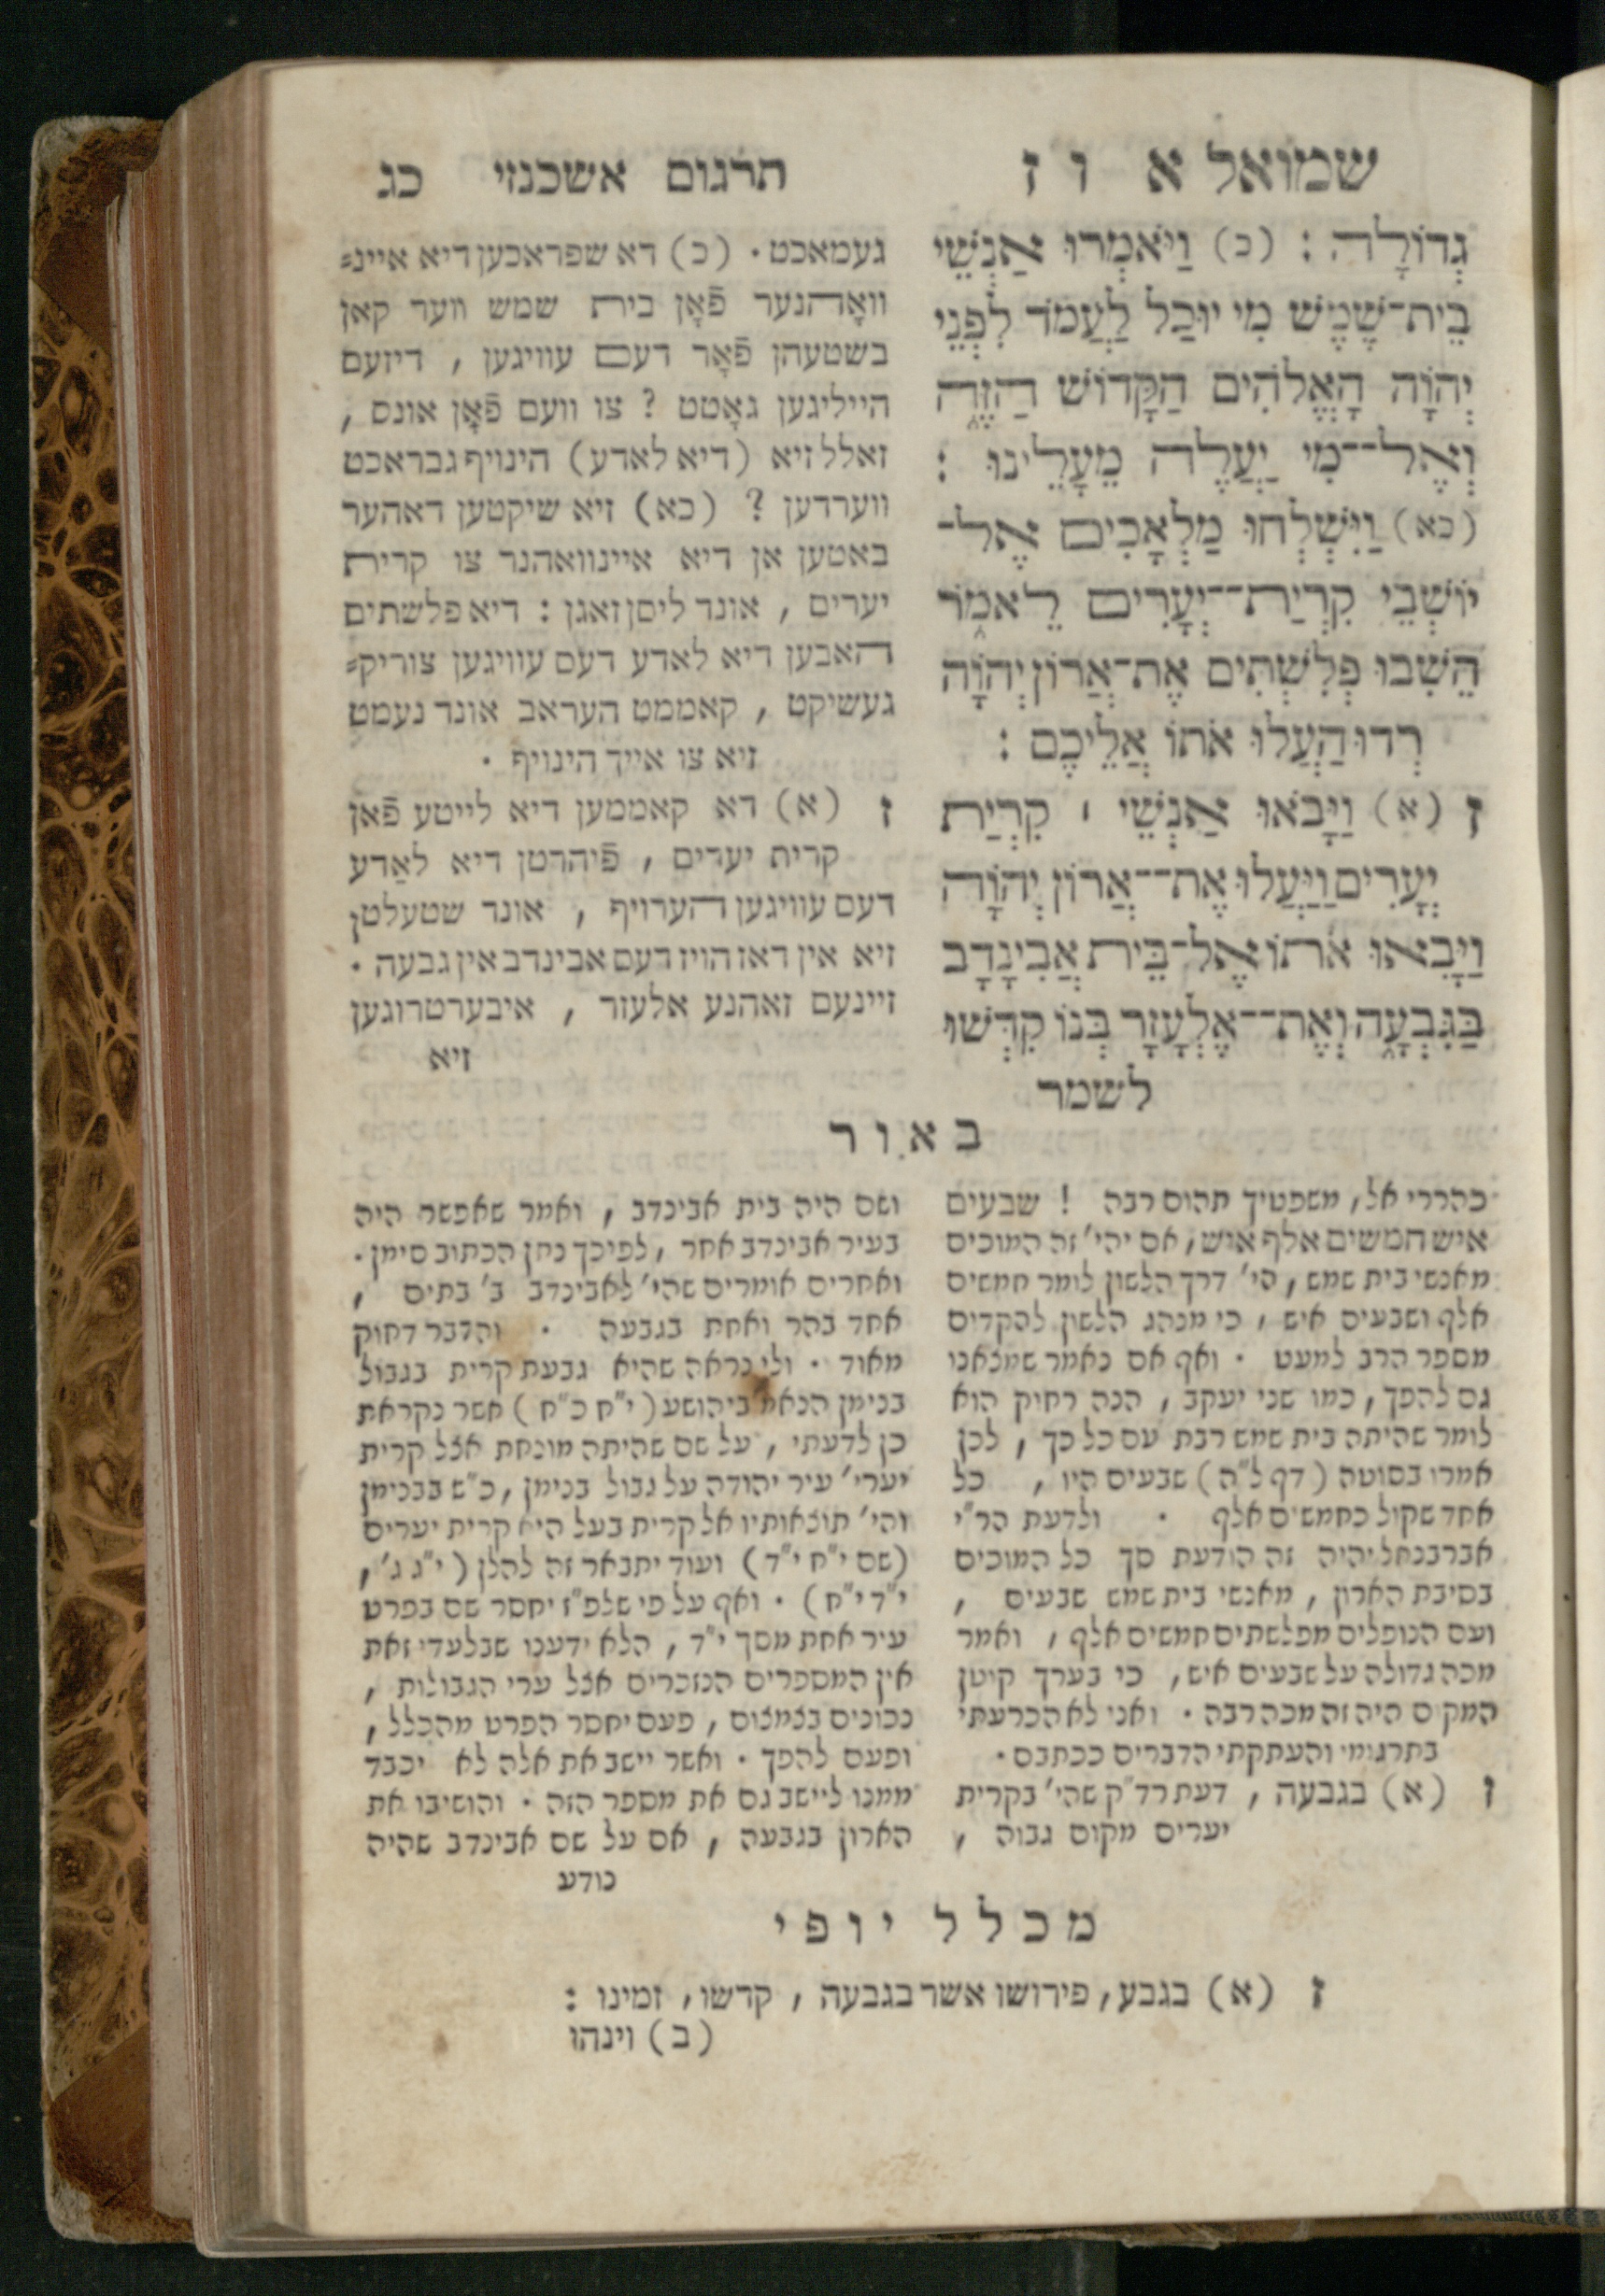 שמואל א ו ז
תרגום אשכנזי כג
גְדוֹלָה : (כ) וַיֹּאמְרוּ אַנְשֵׁי
בֵית־שֶׁמֶשׁ מִי יוּכַל לַעֲמֹד לִפְנֵי
יְהוָֹה הָאֱלֹהִים הַקָּדוֹשׁ הַזֶּה
וְאֶל־־מִי יַעֲלֶה מֵעָלֵינוּ :
(כא) וַיִּשְׁלְחוּ מַלְאָכִים אֶל־
יוֹשְׁבֵי קִרְיַת־־יְעָרִים לֵאמֹר
הֵשִׁבוּ פְלִשְׁתִּים אֶת־אֲרוֹן יְהוָֹה
רְדוּ הַעֲלוּ אֹתוֹ אֲלֵיכֶם :
ז (א) וַיָּבֹאוּ אַנְשֵׁי ׀ קִרְיַת
יְעָרִים וַיַּעֲלוּ אֶת־־אֲרוֹן יְהוָֹה
וַיָּבִאוּ אֹתוֹ אֶל־בֵּית אֲבִינָדָב
בַּגִּבְעָה וְאֶת־־אֶלְעָזָר בְּנוֹ קִדְּשׁוּ
לשמר
געמאכט · (כ) דא שפראכען דיא איינ=
וואָהנער פֿאָן בית שמש ווער קאן
בשטעהן פֿאָר דעם עוויגען , דיזעם
הייליגען גאָטט ? צו וועם פֿאָן אונס ,
זאלל זיא (דיא לאדע) הינויף גבראכט
ווערדען ? (כא) זיא שיקטען דאהער
באטען אן דיא איינוואהנר צו קרית
יערים , אונד ליסן זאגן : דיא פלשתים
האבען דיא לאדע דעם עוויגען צוריק=
געשיקט , קאממט העראב אונד נעמט
זיא צו אייך הינויף ·
ז (א) דא קאממען דיא לייטע פֿאן
קרית יערים , פֿיהרטן דיא לאַדע
דעם עוויגען הערויף , אונד שטעלטן
זיא אין דאז הויז דעם אבינדב אין גבעה ·
זיינעם זאהנע אלעזר , איבערטרוגען
זיא
באור
כהררי אל, משפטיך תהום רבה ! שבעים
איש חמשים אלף איש, אם יהי' זה המוכים
מאנשי בית שמש, הי' דרך הלשון לומר חמשים
אלף ושבעים איש, כי מנהג הלשון להקדים
מספר הרב למעט · ואף אם נאמר שמצאנו
גם להפך, כמו שני יעקב, הנה רחוק הוא
לומר שהיתה בית שמש רבת עם כל כך, לכן
אמרו בסוטה (דף ל"ה) שבעים היו, כל
אחד שקול כחמשים אלף · ולדעת הר"י
אברבנאל יהיה זה הודעת סך כל המוכים
בסיבת הארון, מאנשי בית שמש שבעים ,
ועם הנופלים מפלשתים חמשים אלף, ואמר
מכה גדולה על שבעים איש, כי בערך קוטן
המקום היה זה מכה רבה · ואני לא הכרעתי
בתרגומי והעתקתי הדברים ככתבם ·
ז (א) בגבעה, דעת רד"ק שהי' בקרית
יערים מקום גבוה ,
ושם היה בית אבינדב, ואמר שאפשר היה
בעיר אבינדב אחר, לפיכך נתן הכתוב סימן ·
ואחרים אומרים שהי' לאבינדב ב' בתים ,
אחד בהר ואחת בגבעה · והדבר דחוק
מאוד · ולי נראה שהיא גבעת קרית בגבול
בנימן הנאמ' ביהושע (י"ח כ"ח) אשר נקראת
כן לדעתי, על שם שהיתה מונחת אצל קרית
יערי' עיר יהודה על גבול בנימן, כ"ש בבנימן
והי' תוצאותיו אל קרית בעל היא קרית יערים
(שם י"ח י"ד) ועוד יתבאר זה להלן (י"ג ג',
י"ד י"ח) · ואף על פי שלפ"ז יחסר שם בפרט
עיר אחת מסך י"ד, הלא ידענו שבלעדי זאת
אין המספרים הנזכרים אצל ערי הגבולות,
נכונים בצמצום, פעם יחסר הפרט מהכלל,
ופעם להפך · ואשר יישב את אלה לא יכבד
ממנו ליישב גם את מספר הזה · והושיבו את
הארון בגבעה, אם על שם אבינדב שהיה
נודע
מכלל יופי
ז (א) בגבע, פירושו אשר בגבעה, קדשו, זמינו :
(ב) וינהו